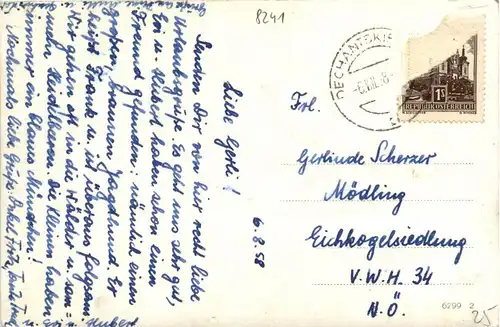 8241
6.8.58
Liebe Gerli!
Senden Dir von hier recht liebe
Urlaubsgrüße. Es geht uns sehr gut,
Evi u. Hubert haben schon einen
Freund gefunden: nämlich einen
großen, braunen Jagdhund. Er
heißt Frank u. ist überaus folgsam.
Wir gehen oft in die Wälder
Heidelbeeren. Die Kleinen haben
immer ein blaues Mündchen!
Nochmals liebe Grüße Onkel Fritz, Tante
u. Evi u. Hubert
DECHANTSKIRCHEN
-6.VIII.58-
1S
REPUBLIK ÖSTERREICH
Frl.
Gerlinde Scherzer
Mödling
Eichkogelsiedlung
V.W.H. 34
N.Ö.
6299 2
25